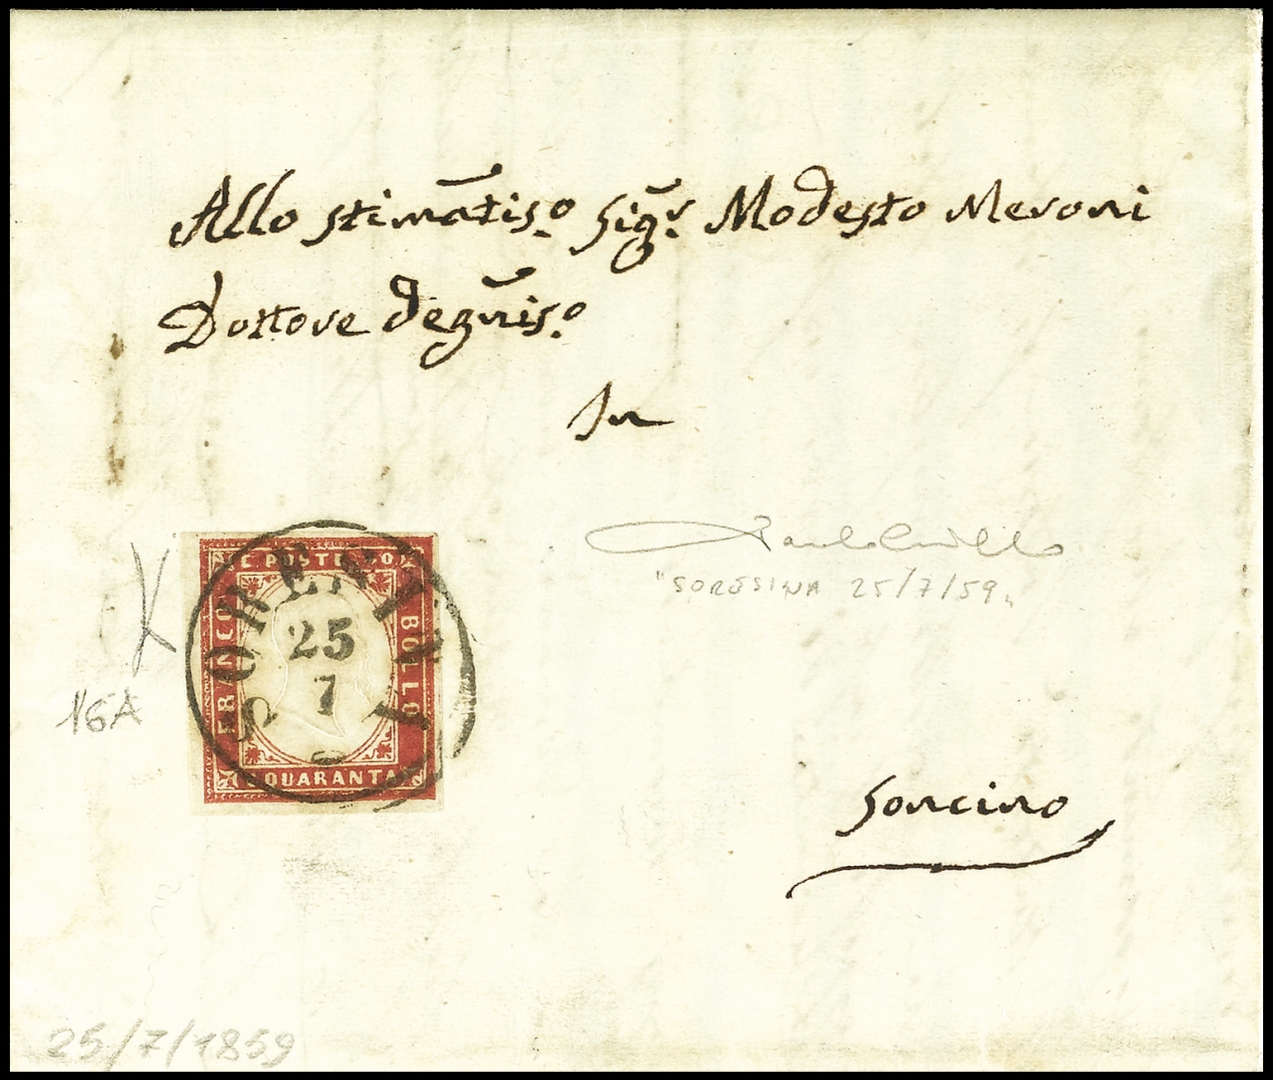 Allo stimatis.o Sig.r Modesto Meroni
Dottore degnis.o
In
"SORESINA 25/7/59"
C. POSTE 40
FRANCO
BOLLO
C. QUARANTA
SORESINA
25
7
16A
Soncino
25/7/1859